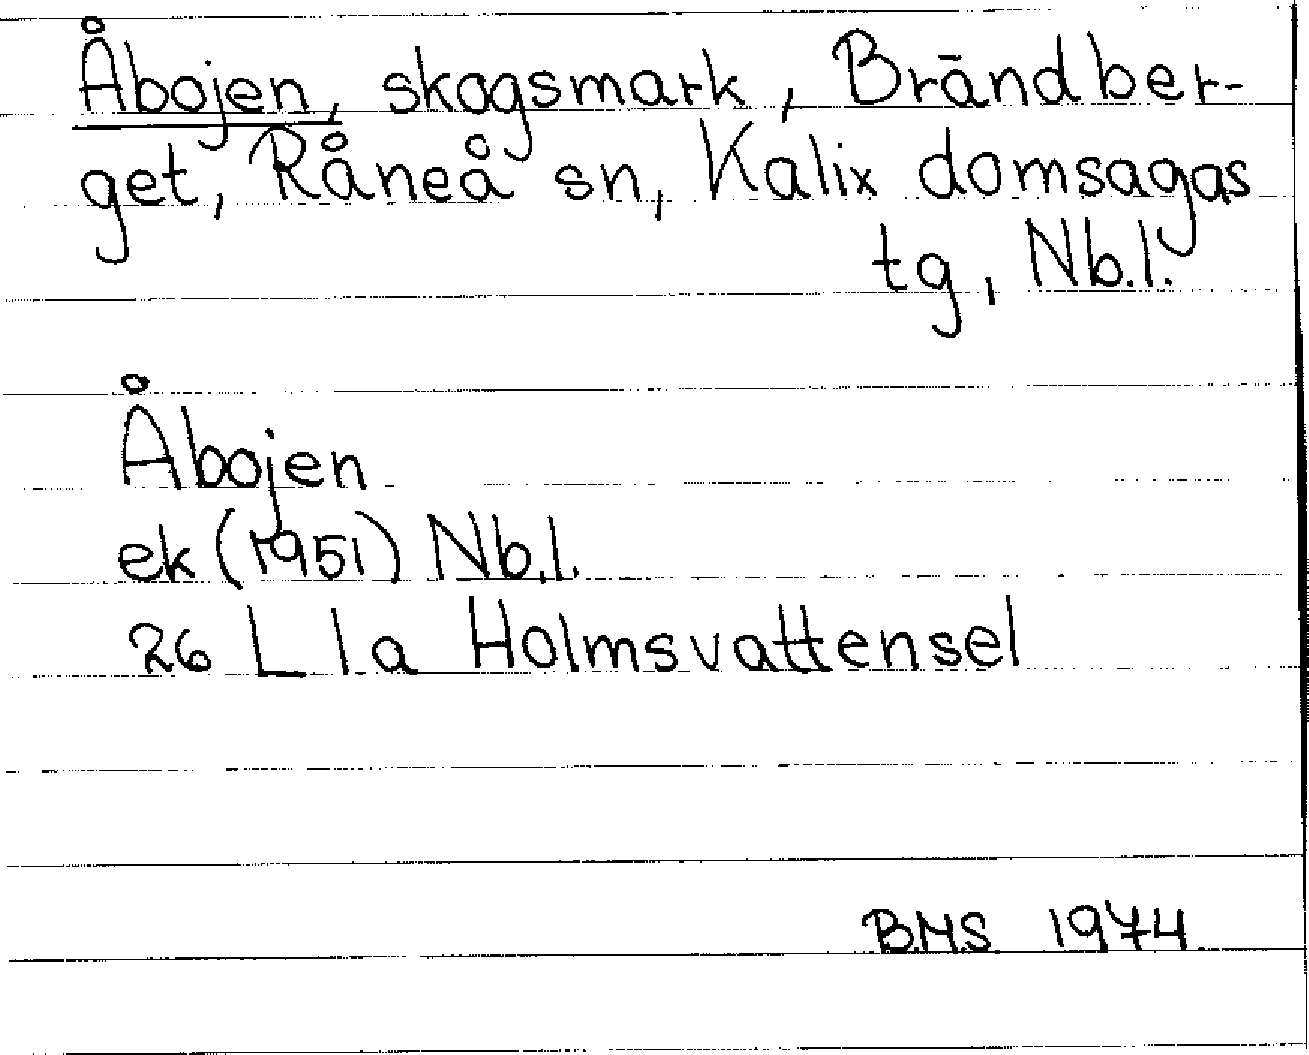 Åbojen, skogsmark, Brändber-
get, Råneå sn, Kalix domsagas
tg, Nb.l.
Åbojen
ek (1951) Nb.l.
26 L 1a Holmsvattensel
B.M.S. 1974